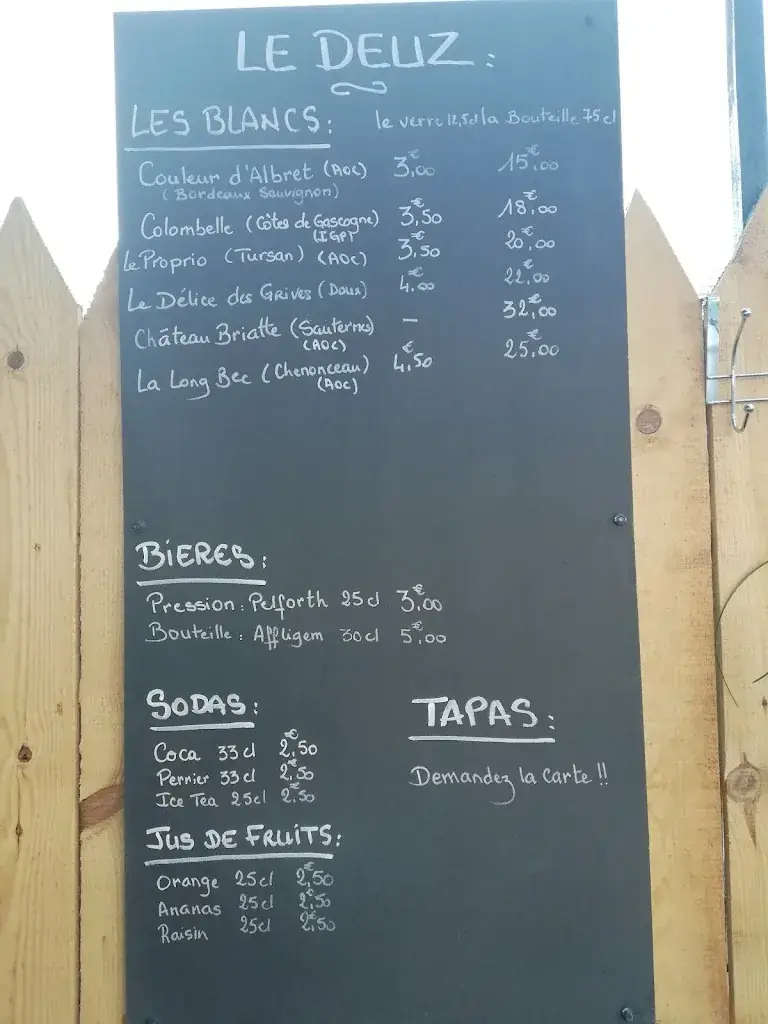 LE DEUZ :
LES BLANCS : le verre 12,5cl la Bouteille 75 cl
Couleur d'Albret (AOC) 3,€00 15,€00
(Bordeaux Sauvignon)
Colombelle (Côtes de Gascogne) 3,€50 18,€00
(IGP)
Le Proprio (Tursan) (AOC) 3,€50 20,€00
Le Délice des Grives (Doux) 4,€00 22,€00
Château Briatte (Sauternes) — 32,€00
(AOC)
La Long Bec (Chenonceau) 4,€50 25,€00
(AOC)
BIERES :
Pression : Pelforth 25 cl 3,€00
Bouteille : Affligem 30 cl 5,€00
SODAS :
Coca 33 cl 2,€50
Perrier 33 cl 2,€50
Ice Tea 25 cl 2,€50
TAPAS :
Demandez la carte !!
JUS DE FRUITS :
Orange 25 cl 2,€50
Ananas 25 cl 2,€50
Raisin 25 cl 2,€50